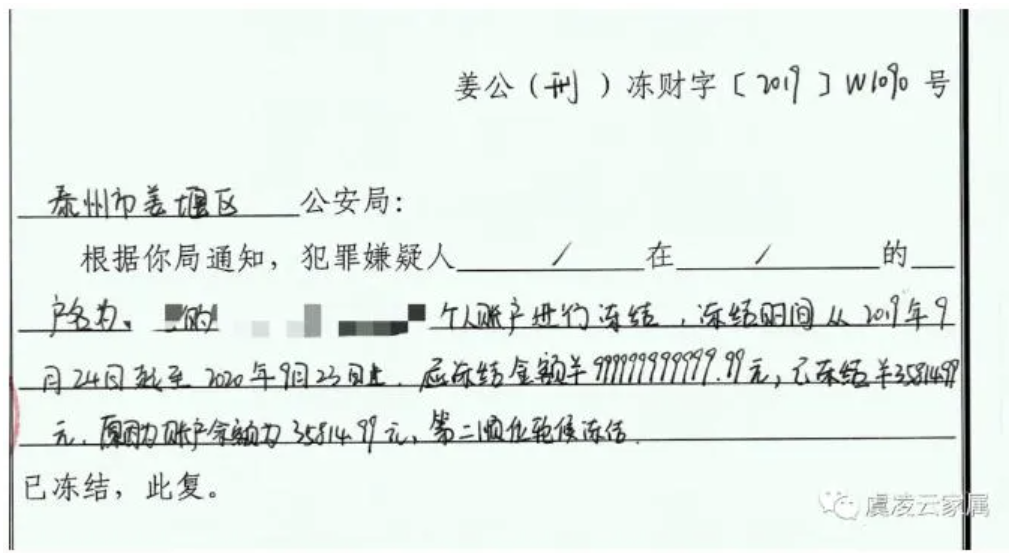 姜公（刑）冻财字〔2019〕W1090号
泰州市姜堰区 公安局：
根据你局通知，犯罪嫌疑人 / 在 / 的
户名为、 的 个人账户进行冻结，冻结时间从2019年9
月24日起至2020年9月23日止，应冻结金额¥999999999999.99元，已冻结¥35814.99
元，原因为账户余额为35814.99元，第二顺位轮候冻结.
已冻结，此复。
虞凌云家属